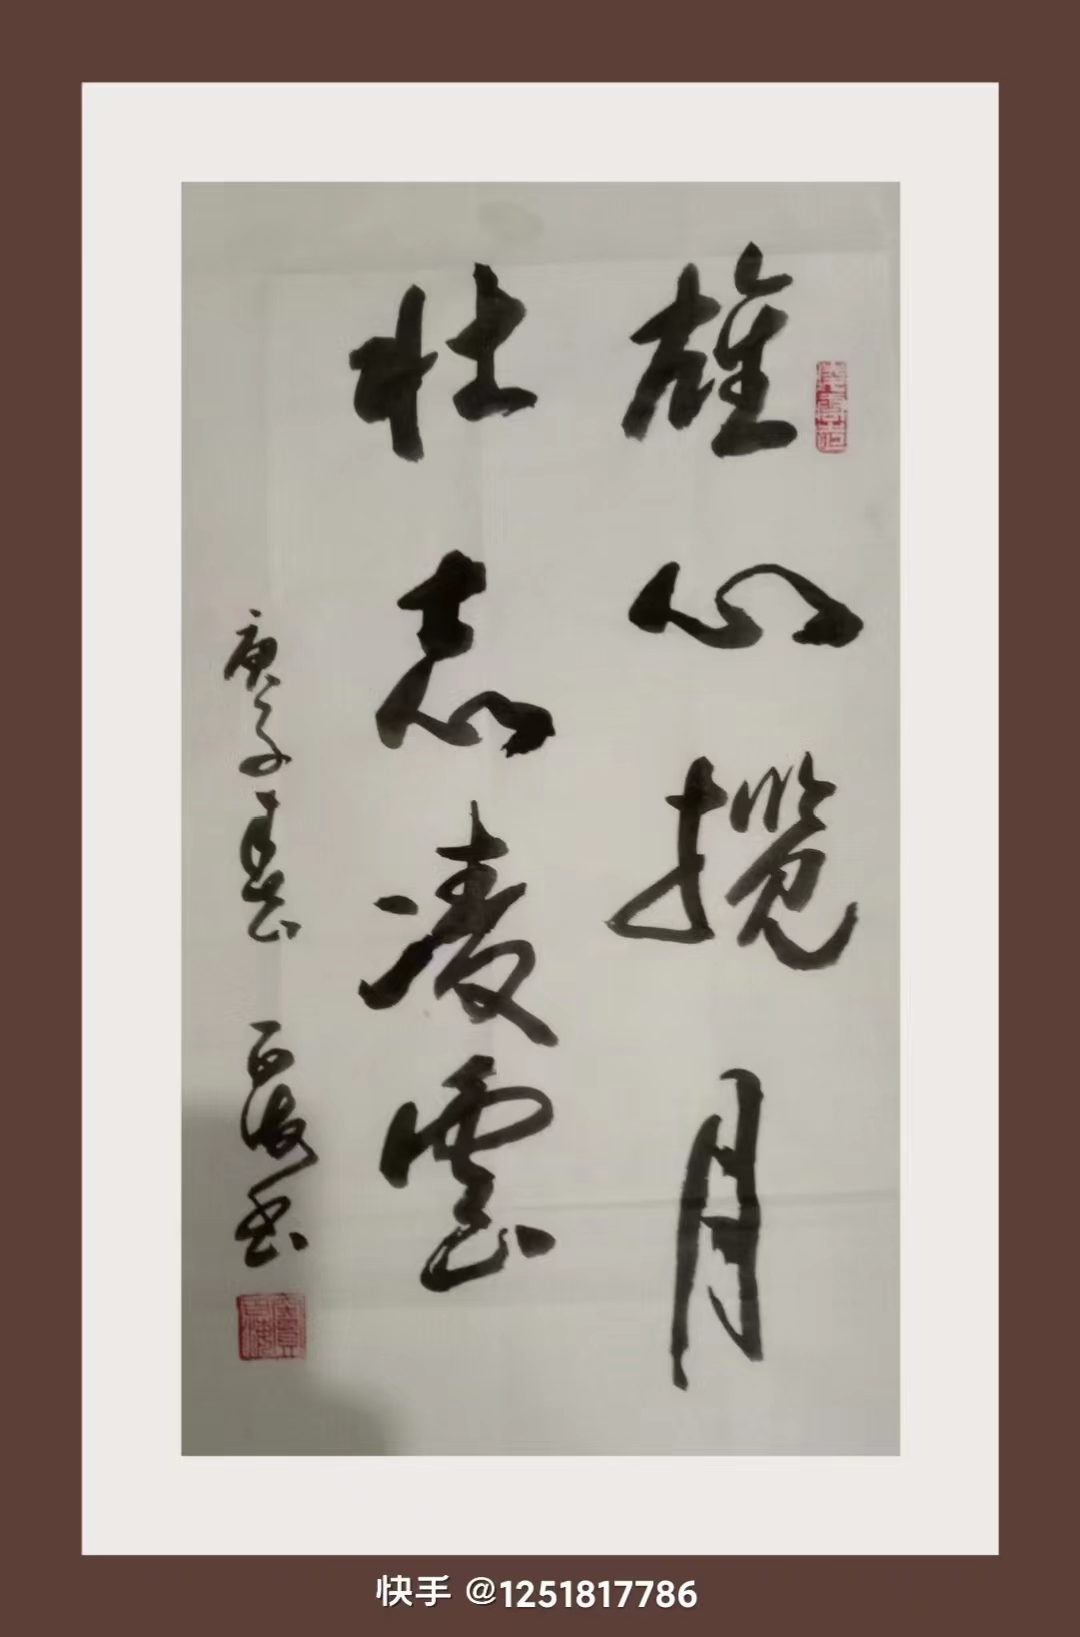 雄心揽月
壮志凌雲
庚子春 百海书
快手 @1251817786